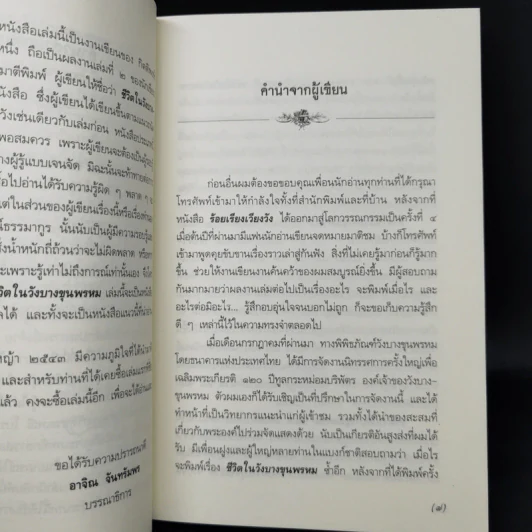 หนังสือเล่มนี้เป็นงานเขียนของ
หนึ่ง ถือเป็นผลงานเล่มที่ ๒
มาตีพิมพ์ ผู้เขียนให้ชื่อว่า
หนังสือ ซึ่งผู้เขียนได้เขียนขึ้นตาม
วังเช่นเดียวกับเล่มก่อน
พอสมควร เพราะผู้เขียนจะต้องเป็น
ผู้รู้แบบเจนจัด มิฉะนั้นจะ
ไปอ่านได้รับความรู้ผิด ๆ
แต่ในส่วนของผู้เขียนเรื่องนี้หรือ
ธรรมากูร นั้นนับเป็นผู้มีความรอบรู้
น้ำหนักที่ถ้วนว่าจะไม่ผิดพลาด
เพราะรู้เท่าไม่ถึงการณ์เท่านั้นเอง
ชีวิตในวังบางขุนพรหม เล่มนี้จะเป็น
ได้ และทั้งจะเป็นหนังสือ
หญ้า ๒๕๔๓ มีความภูมิใจที่ได้
และสำหรับท่านที่ได้เคยซื้อเล่มแรก
แล้ว คงจะซื้อเล่มนี้อีก เพื่อจะได้
ขอได้รับความปรารถนาดี
อาจิณ จันทรัมพร
บรรณาธิการ
คำนำจากผู้เขียน
ก่อนอื่นผมต้องขอขอบคุณเพื่อนนักอ่านทุกท่านที่ได้กรุณา
โทรศัพท์เข้ามาให้กำลังใจทั้งที่สำนักพิมพ์และที่บ้าน หลังจากที่
หนังสือ ร้อยเรียงเวียงวัง ได้ออกมาสู่โลกวรรณกรรมเป็นครั้งที่ ๔
เมื่อต้นปีที่ผ่านมามีแฟนนักอ่านเขียนจดหมายมาติชม บ้างก็โทรศัพท์
เข้ามาพูดคุยขับขานเรื่องราวเล่าสู่กันฟัง สิ่งที่ไม่เคยรู้ก็มีโอกาสได้รู้มาก
ขึ้น ช่วยให้งานเขียนงานค้นคว้าของผมสมบูรณ์ยิ่งขึ้น มีผู้สอบถาม
กันมากมายว่าผลงานเล่มต่อไปเป็นเรื่องอะไร จะพิมพ์เมื่อไร และ
อะไรต่อมิอะไร... รู้สึกอบอุ่นใจจนบอกไม่ถูก ก็จะขอเก็บความรู้สึก
ดี ๆ เหล่านี้ไว้ในความทรงจำตลอดไป
เมื่อเดือนกรกฎาคมที่ผ่านมา ทางพิพิธภัณฑ์วังบางขุนพรหม
โดยธนาคารแห่งประเทศไทย ได้มีการจัดงานนิทรรศการครั้งใหญ่เพื่อ
เฉลิมพระเกียรติ ๑๒๐ ปีทูลกระหม่อมบริพัตร องค์เจ้าของวังบาง-
ขุนพรหม ตัวผมเองก็ได้รับเชิญเป็นที่ปรึกษาในการจัดงานนี้ และได้
ทำหน้าที่เป็นวิทยากรแนะนำแก่ผู้เข้าชม รวมทั้งได้นำของสะสมที่
เกี่ยวกับพระองค์ไปร่วมจัดแสดงด้วย นับเป็นเกียรติอันสูงส่งที่ผมได้
รับ มีเพื่อนฝูงและผู้ใหญ่หลายท่านในแบงก์ชาติสอบถามว่า เมื่อไร
จะพิมพ์เรื่อง ชีวิตในวังบางขุนพรหม ซ้ำอีก หลังจากที่ได้พิมพ์ครั้ง
(๗)